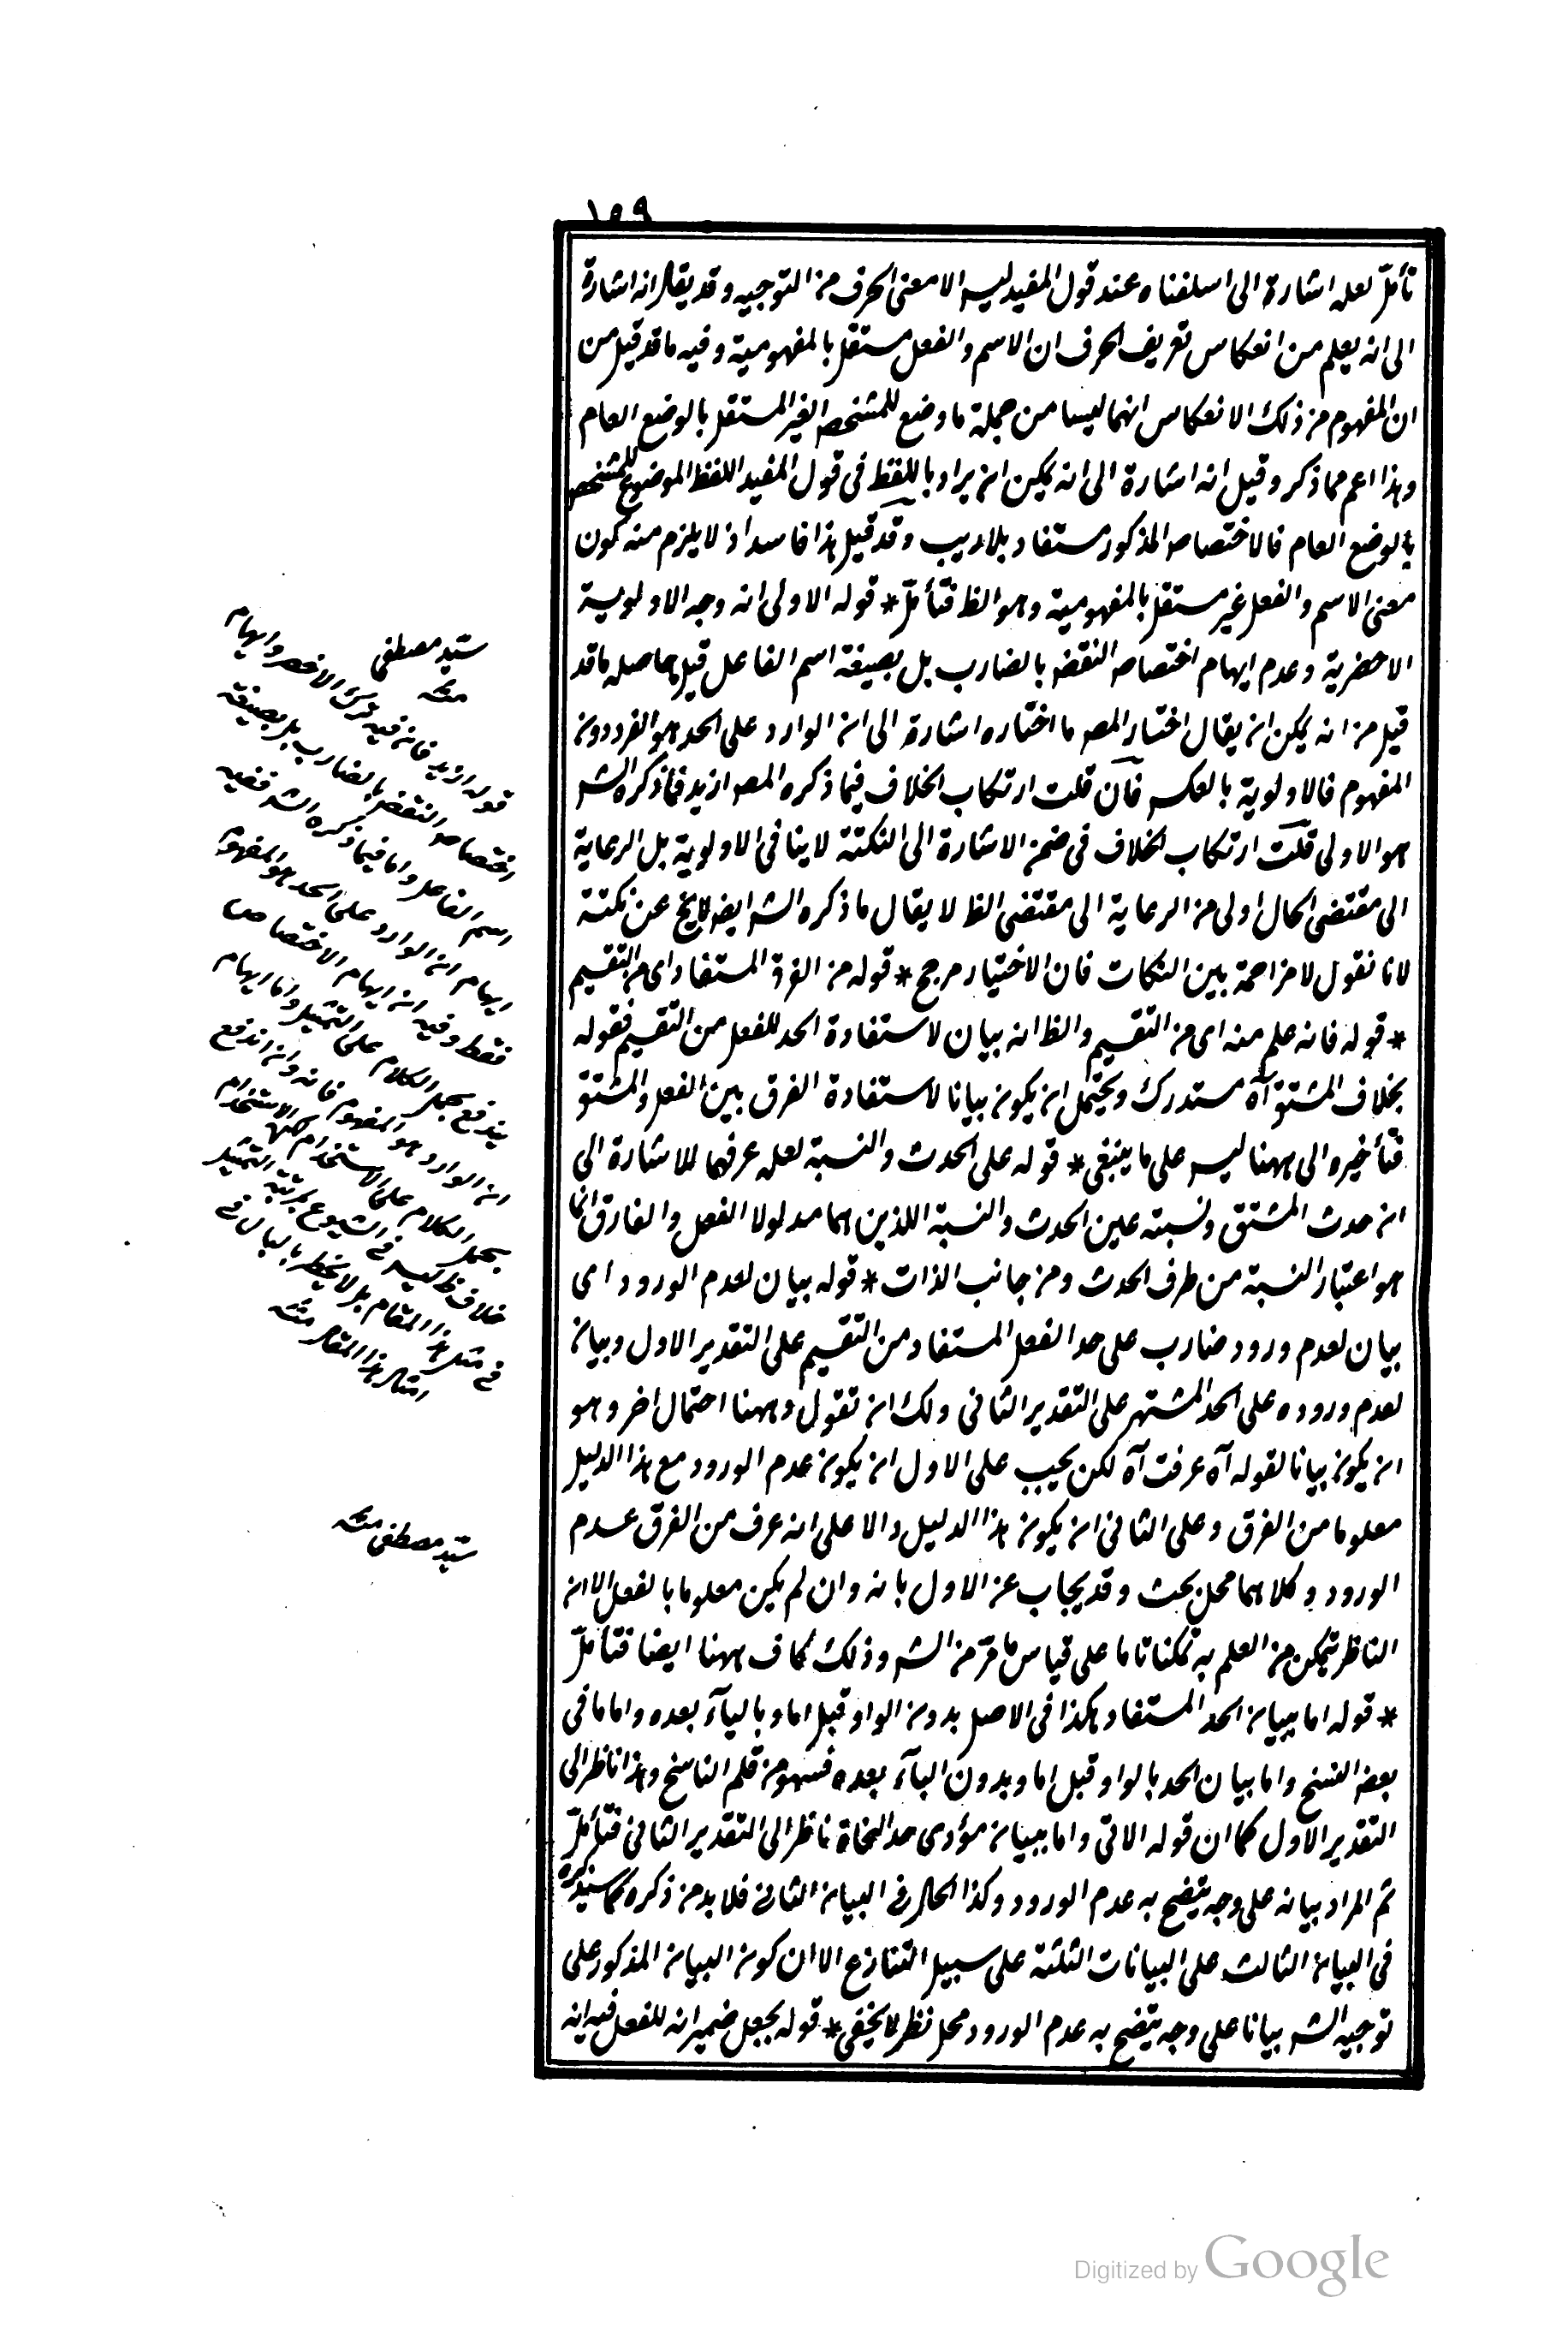 ١٥٩
تأمل لعله اشارة الى اسلفناه عند قول المفيد ليس الا معنى الحرف من التوجيه وقد يقال انه اشارة
الى انه يعلم من انعكاس تعريف الحرف ان الاسم والفعل مستقل بالمفهومية وفيه ما قد قيل من
ان المفهوم من ذلك الانعكاس انهما ليسا من جملة ما وضع للمشخص الغير المستقل بالوضع العام
وهذا اعم مما ذكر وقيل انه اشارة الى انه يمكن ان يراد باللفظ فى قول المفيد اللفظ الموضوع للمشخص
بالوضع العام فالاختصاص المذكور مستفاد بلا ريب وقد قيل هذا فاسد اذ لا يلزم منه كون
معنى الاسم والفعل غير مستقل بالمفهومية وهو الظ فتأمل * قوله الاولى انه وجه الاولوية
الاخصرية وعدم ايهام اختصاص النقض بالضارب بل بصيغة اسم الفاعل قيل حاصله ما قد
قيل من انه يمكن ان يقال اختار المص ما اختاره اشارة الى ان الوارد على الحد هو الفرد دون
المفهوم فالاولوية بالعكس فان قلت ارتكاب الخلاف فيما ذكره المص ازيد فما ذكره الش
هو الاولى قلت ارتكاب الخلاف فى ضمن الاشارة الى النكتة لا ينافى الاولوية بل الرعاية
الى مقتضى الحال اولى من الرعاية الى مقتضى الظ لا يقال ما ذكره الش ايضا لا يخ عن نكتة
لانا نقول لا مزاحمة بين النكات فان الاختيار مرجح * قوله من الفرق المستفاد اى من التقسيم
* قوله فانه علم منه اى من التقسيم والظ انه بيان لاستفادة الحد للفعل من التقسيم فقوله
بخلاف المشتق آه مستدرك ويحتمل ان يكون بيانا لاستفادة الفرق بين الفعل والمشتق
فتأخيره الى ههنا ليس على ما ينبغى * قوله على الحدث والنسبة لعله عرفهما للاشارة الى
ان حدث المشتق ونسبته عين الحدث والنسبة اللذين هما مدلولا الفعل والفارق انما
هو اعتبار النسبة من طرف الحدث ومن جانب الذات * قوله بيان لعدم الورود اى
بيان لعدم ورود ضارب على حد الفعل المستفاد من التقسيم على التقدير الاول وبيان
لعدم وروده على الحد المشتهر على التقدير الثانى ولك ان تقول وههنا احتمال اخر وهو
ان يكون بيانا لقوله آه عرفت آه لكن يجب على الاول ان يكون عدم الورود مع هذا الدليل
معلوما من الفرق وعلى الثانى ان يكون هذا الدليل دالا على انه عرف من الفرق عدم
الورود وكلاهما محل بحث وقد يجاب عن الاول بانه وان لم يكن معلوما بالفعل الا ان
الناظر يتمكن من العلم به تمكنا تاما على قياس ما مر من الش وذلك كاف ههنا ايضا فتأمل
* قوله اما ببيان الحد المستفاد هكذا فى الاصل بدون الواو قبل اما وبالبآء بعده واما ما فى
بعض النسخ واما بيان الحد بالواو قبل اما وبدون البآء بعده فسهو من قلم الناسخ وهذا ناظر الى
التقدير الاول كما ان قوله الاتى واما ببيان مؤدى حد النحاة ناظر الى التقدير الثانى فتأمل
ثم المراد بيانه على وجه يتضح به عدم الورود وكذا الحال فى البيان الثانى فلا بد من ذكره كما سيذكره
فى البيان الثالث على البيانات الثلثة على سبيل التنازع الا ان كون البيان المذكور على
توجيه الش بيانا على وجه يتضح به عدم الورود محل نظر لا يخفى * قوله بجعل ضمير انه للفعل فيه انه
سيد مصطفى
منه
قوله ازيد فانه فيه ترك الاخصر وايهام
اختصاص النقض بالضارب بل بصيغة
اسم الفاعل واما فيما ذكره الش ففيه
ايهام ان الوارد على الحد هو المفهوم
فقط وفيه ان ايهام الاختصاص
يندفع بحمل الكلام على التمثيل واما ايهام
ان الوارد هو المفهوم فانه وان اندفع
بحمل الكلام على الاستخدام لكن الاستخدام
خلاف ظ ليس فى الشيوع بمرتبة التمثيل
فى مثل هذا المقام بل لا يخطر بالبال فى
امثال هذا المقام منه
سيد مصطفى منه
Digitized by Google